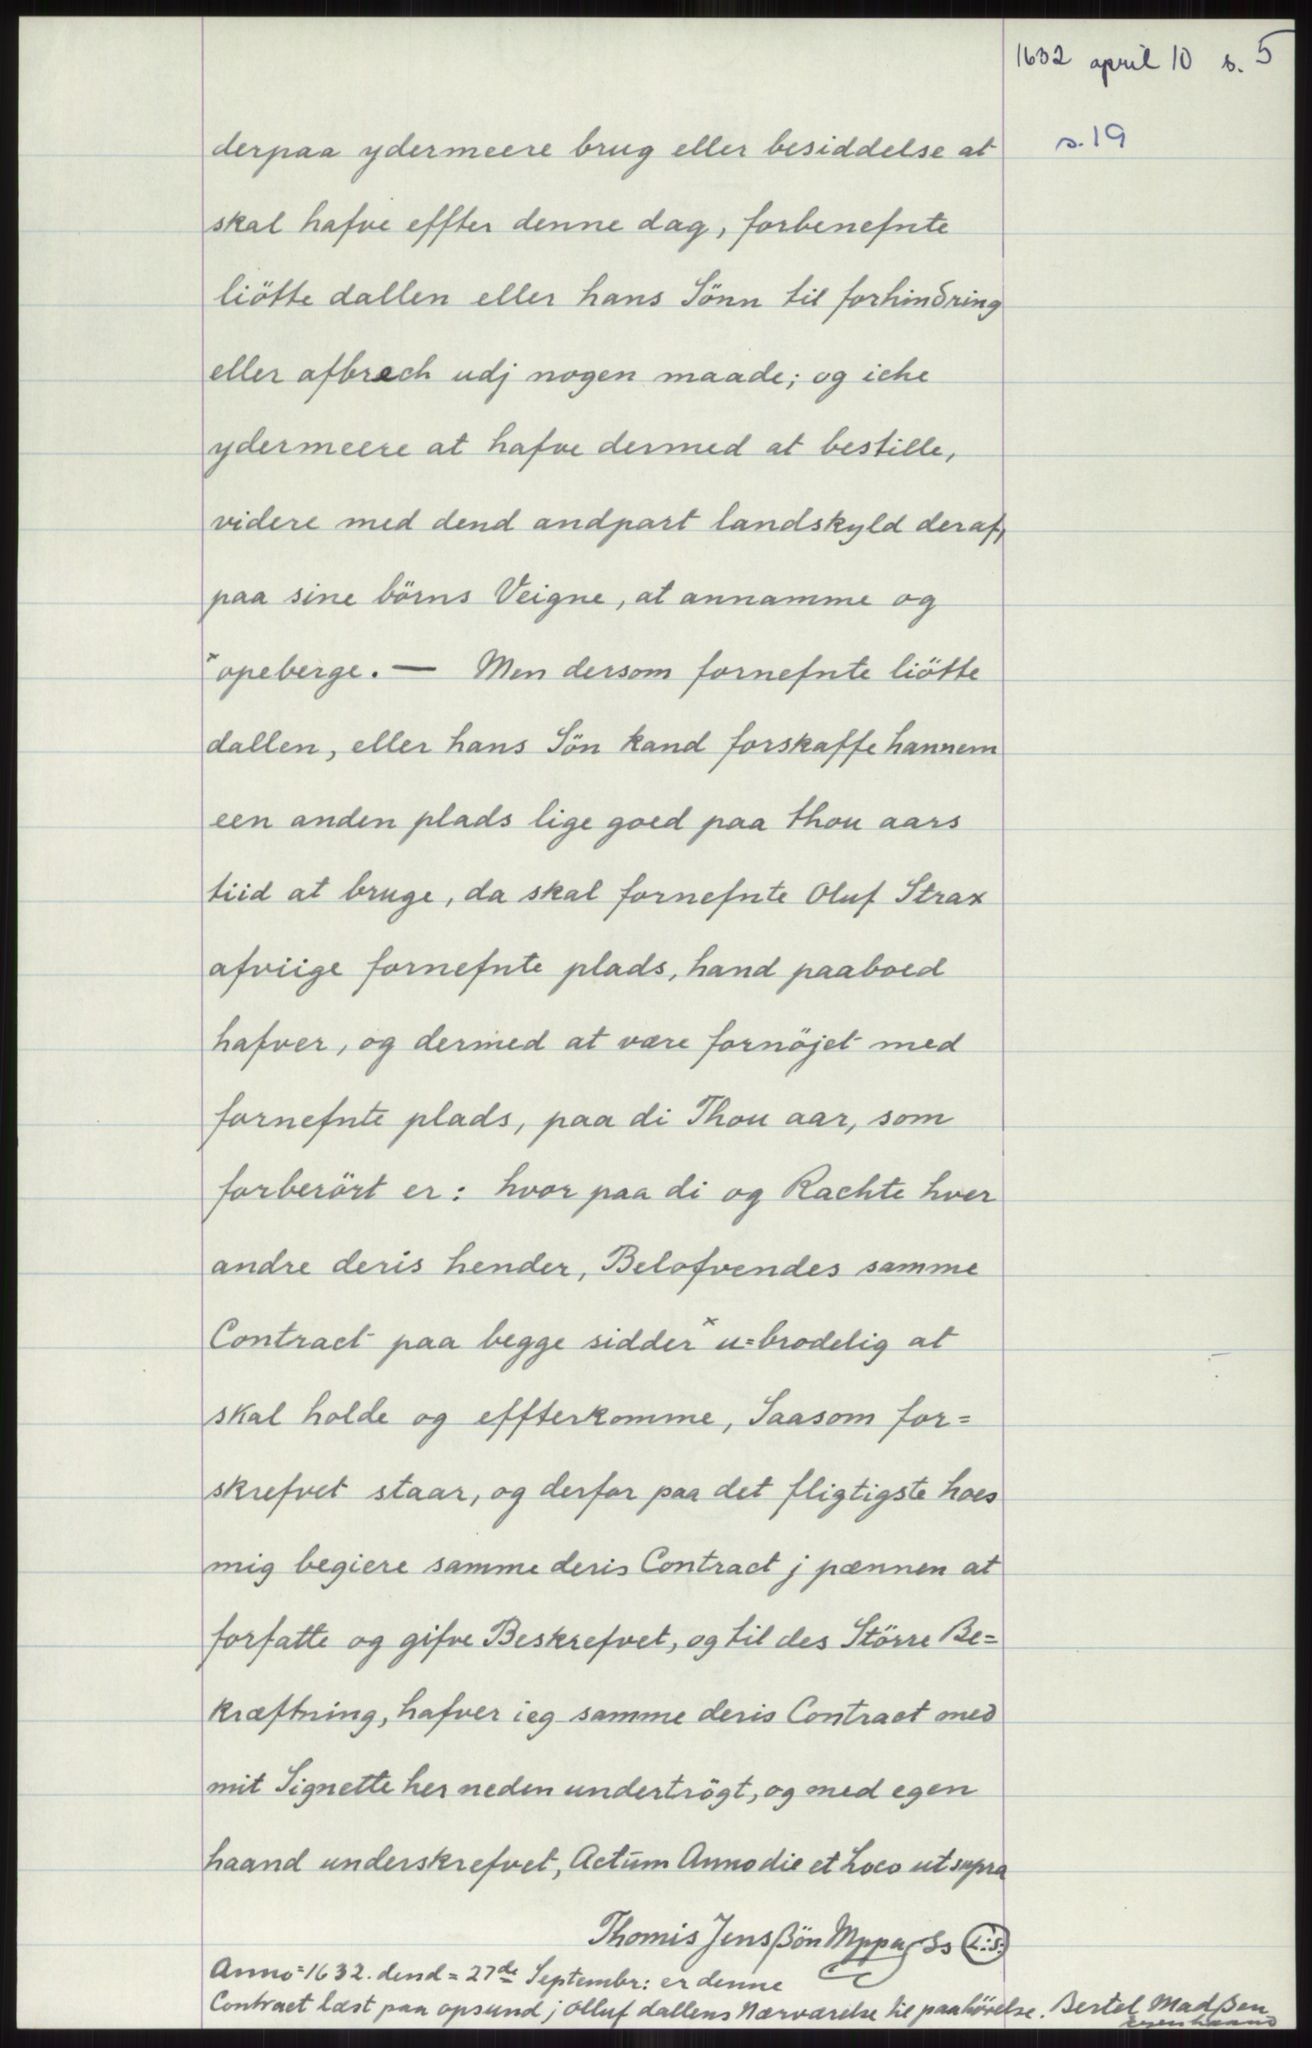 1632 april 10 s. 5
s. 19
derpaa ydermeere brug eller besiddelse at
skal hafve effter denne dag, forbenefnte
liötte dallen eller hans Sönn til forhindring
eller afbrech udj nogen maade; og iche
ydermeere at hafve dermed at bestille,
videre med dend andpart landskyld deraf,
paa sine börns Veigne, at annamme og
x opeberge. — Men dersom fornefnte liötte
dallen, eller hans Sön kand forskaffe hannem
een anden plads lige goed paa thou aars
tiid at bruge, da skal fornefnte Oluf Strax
afviige fornefnte plads, hand paaboed
hafver, og dermed at være fornöjet med
fornefnte plads, paa di Thou aar, som
forberört er: hvor paa di og Rachte hver
andre deris hender, Belofvendes samme
Contract paa begge sidder x u=brodelig at
skal holde og effterkomme, Saasom for=
skrefvet staar, og derfor paa det fligtigste hoes
mig begiere samme deris Contract j pænnen at
forfatte og gifve Beskrefvet, og til des Större Be=
kræftning, hafver ieg samme deris Contract med
mit Signette her neden undertrögt, og med egen
haand underskrefvet, Actum Anno die et Loco ut supra
Thomis Jensßön Mppa Ss L:S:
Anno=1632. dend=27de Septembr: er denne
Contract læst paa opsund j olluf dallens Nærværelse til paahörelse. Bertel Madßen
egen haand